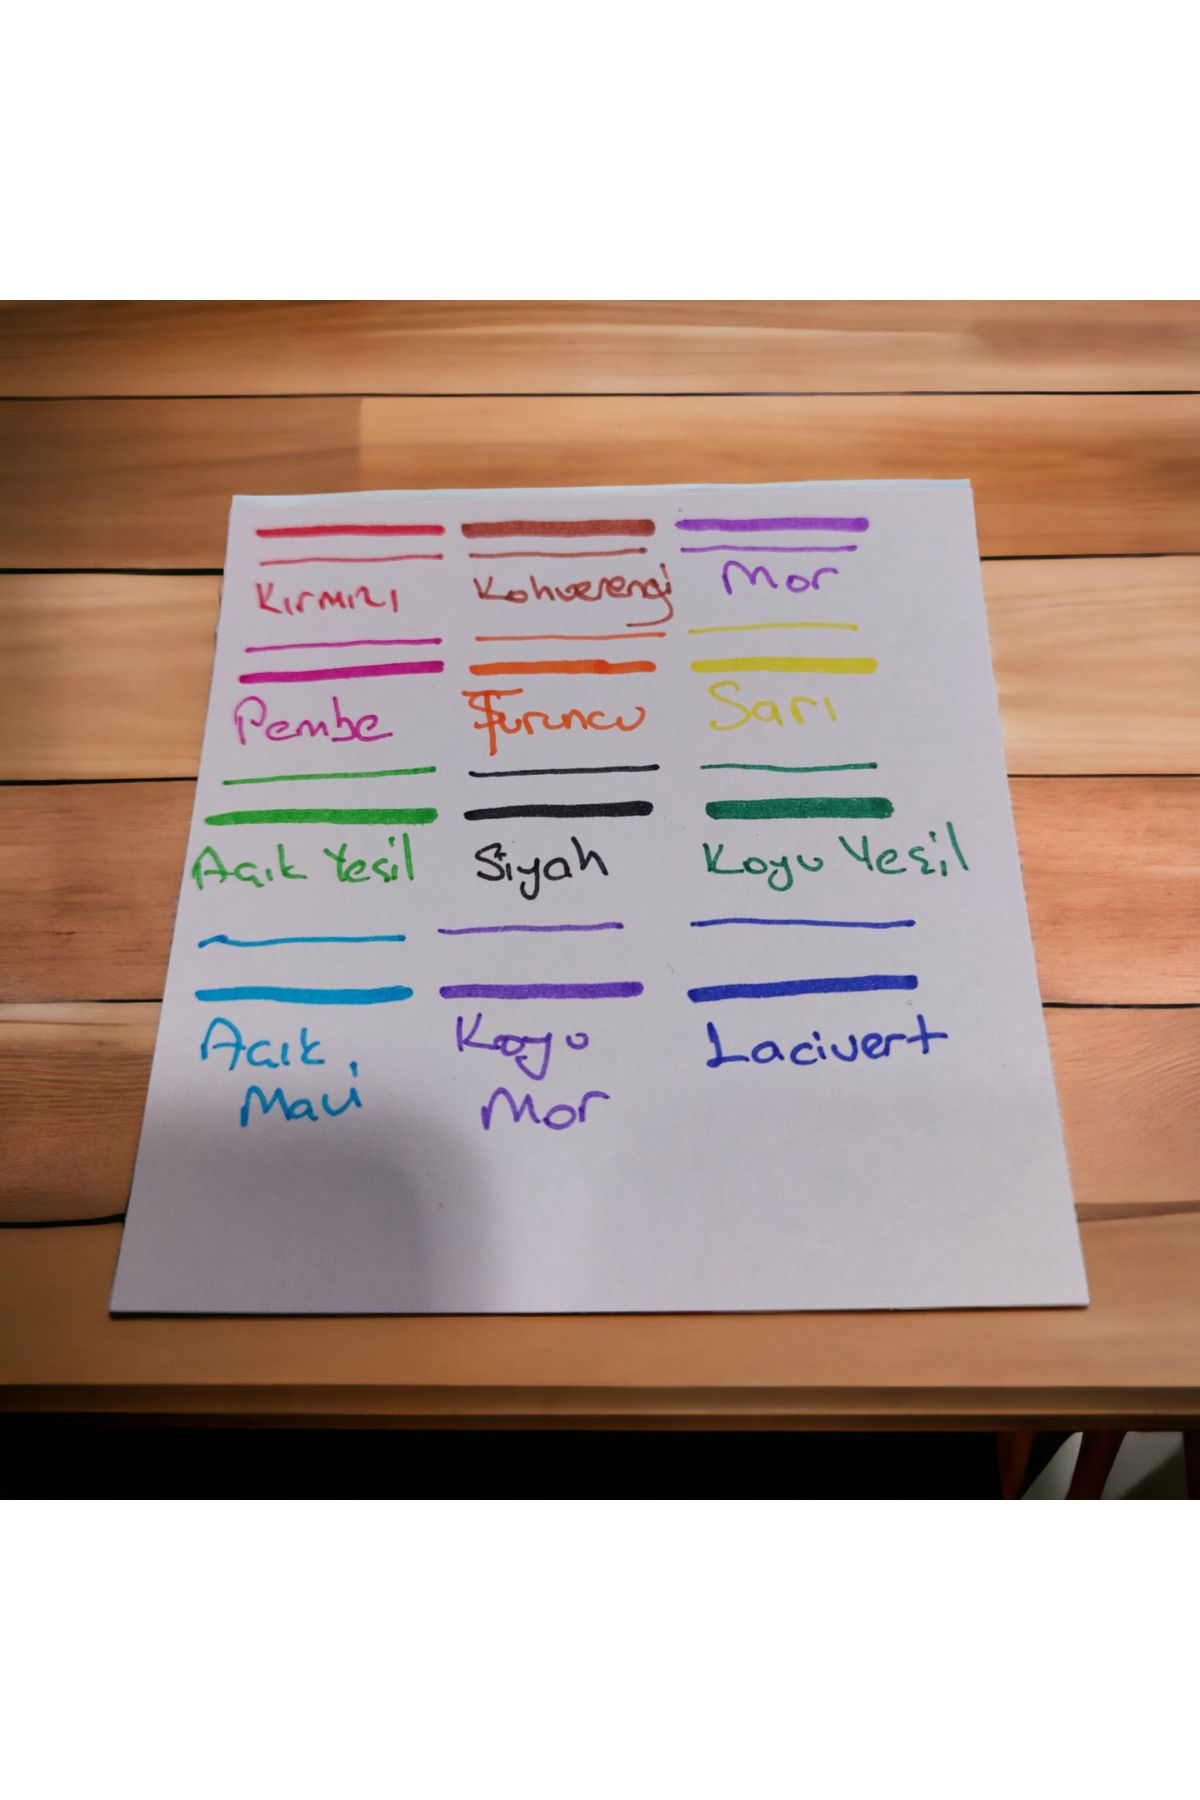 Kırmızı Kahverengi Mor
Pembe Turuncu Sarı
Açık Yeşil Siyah Koyu Yeşil
Açık Koyu Lacivert
Mavi Mor